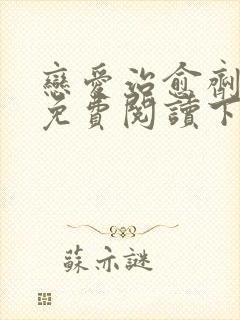 戀愛治愈劑
免費閱讀下
蘇亦謎